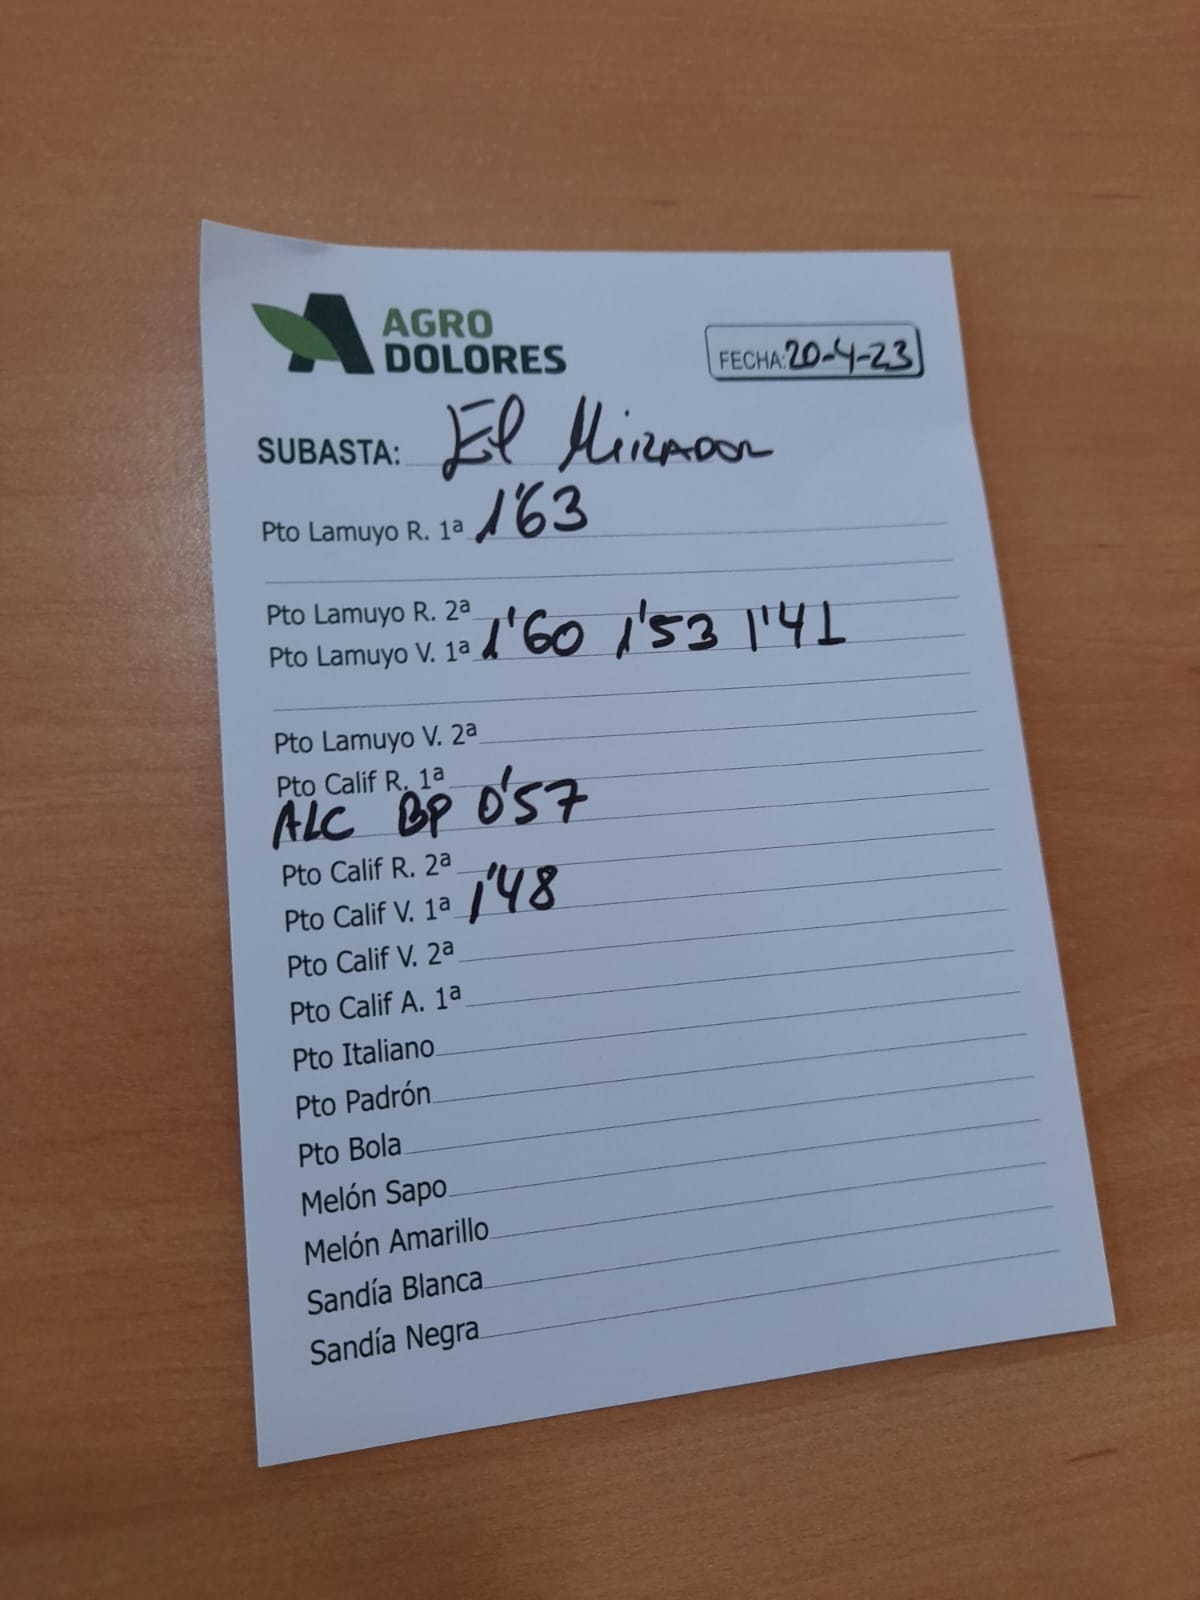 AGRO
DOLORES
FECHA: 20-4-23
SUBASTA: El Mirador
Pto Lamuyo R. 1ª 1'63
Pto Lamuyo R. 2ª
Pto Lamuyo V. 1ª 1'60 1'53 1'41
Pto Lamuyo V. 2ª
Pto Calif R. 1ª
ALC BP 0'57
Pto Calif R. 2ª
Pto Calif V. 1ª 1'48
Pto Calif V. 2ª
Pto Calif A. 1ª
Pto Italiano
Pto Padrón
Pto Bola
Melón Sapo
Melón Amarillo
Sandía Blanca
Sandía Negra